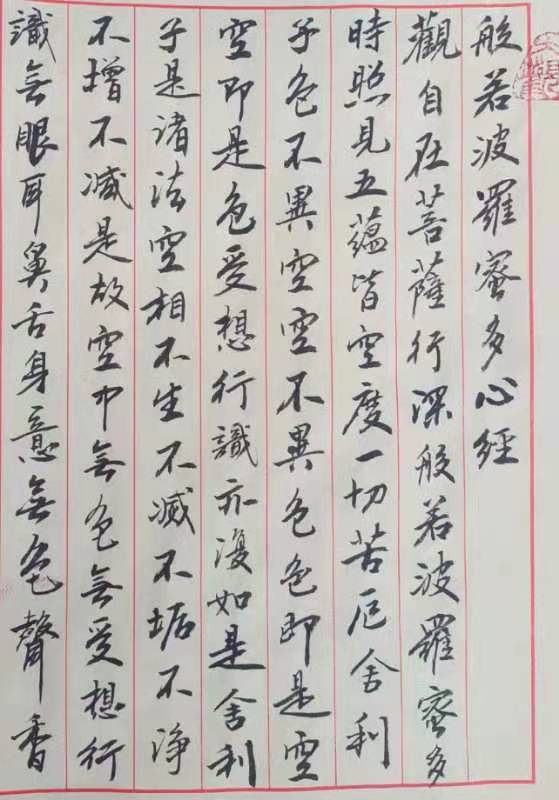 般若波羅蜜多心經
觀自在菩薩行深般若波羅蜜多
時照見五蘊皆空度一切苦厄舍利
子色不異空空不異色色即是空
空即是色受想行識亦復如是舍利
子是诸法空相不生不滅不垢不淨
不增不减是故空中無色無受想行
識無眼耳鼻舌身意無色聲香